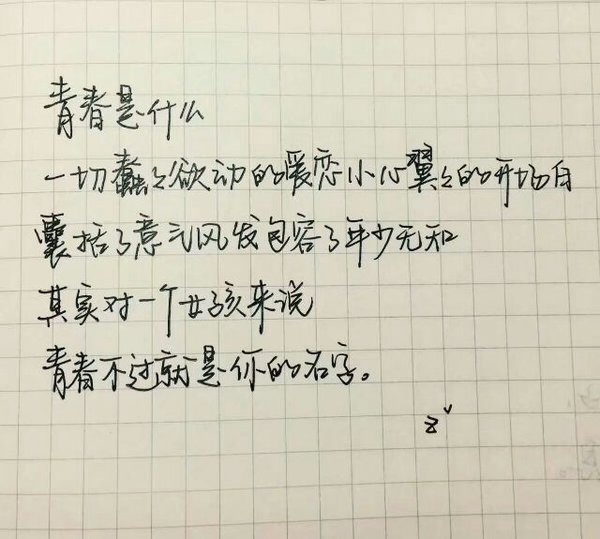 青春是什么
一切蠢々欲动的暖恋小心翼々的开场白
囊括了意气风发包容了年少无知
其实对一个女孩来说
青春不过就是你的名字。